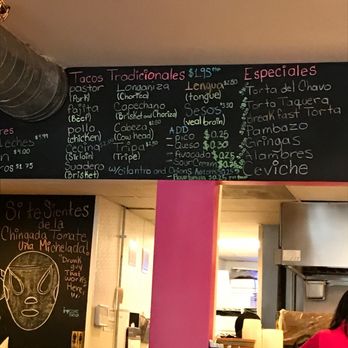 Tacos Tradicionales $1.95
pastor
(Pork)
Fajita
(Beef)
pollo
(chicken)
Cecina
(Sirloin)
Suadero
(Brisket)
Longaniza
(Chorizo)
Capechano
(Brisket and Chorizo)
Cabeza
(Cow head)
Tripa
(Tripe)
w/Cilantro and Onions
Lengua $2.50
(tongue)
Sesos $3.50
(veal brain)
ADD
- Pico $0.25
- Queso $0.30
- Avocado $0.25
- Sour Cream $0.25
Especiales
Torta del Chavo
Torta Taquera
Breakfast Torta
Pambazo
Gringas
Alambres
Ceviche
Leches $4.99
Si te Sientes
de la
Chingada Tomate
Una Michelada!
"Drunk
guy
That
works
Here"